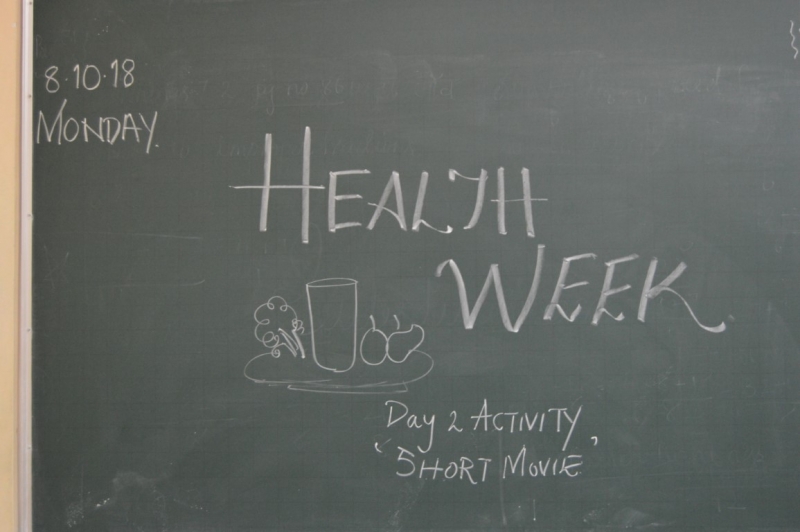 8.10.18
MONDAY.
HEALTH
WEEK.
Day 2 ACTIVITY
"SHORT MOVIE"